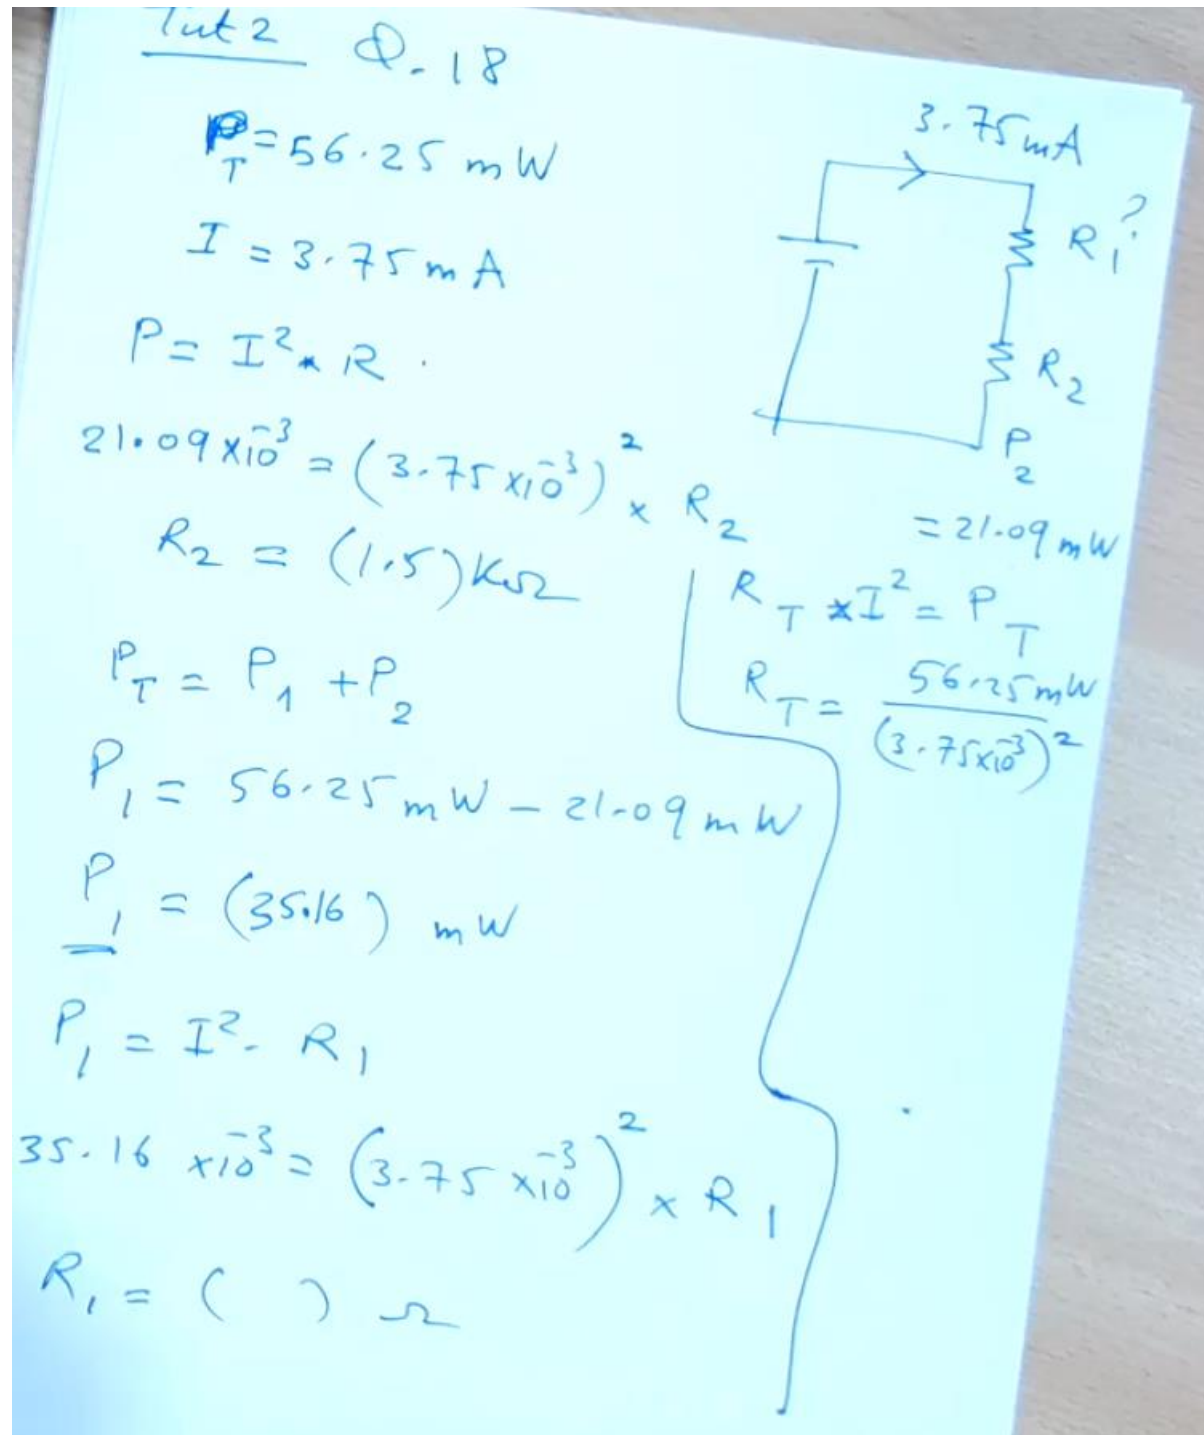 Tut 2 Q.18
P_T = 56.25 mW
I = 3.75 mA
P = I² * R.
21.09 × 10⁻³ = (3.75 × 10⁻³)² × R₂
R₂ = (1.5) KΩ
P_T = P₁ + P₂
P₁ = 56.25 mW – 21.09 mW
P₁ = (35.16) mW
P₁ = I². R₁
35.16 × 10⁻³ = (3.75 × 10⁻³)² × R₁
R₁ = ( ) Ω
3.75 mA
R₁ ?
R₂
P₂
= 21.09 mW
R_T * I² = P_T
R_T = 56.25 mW
(3.75 × 10⁻³)²